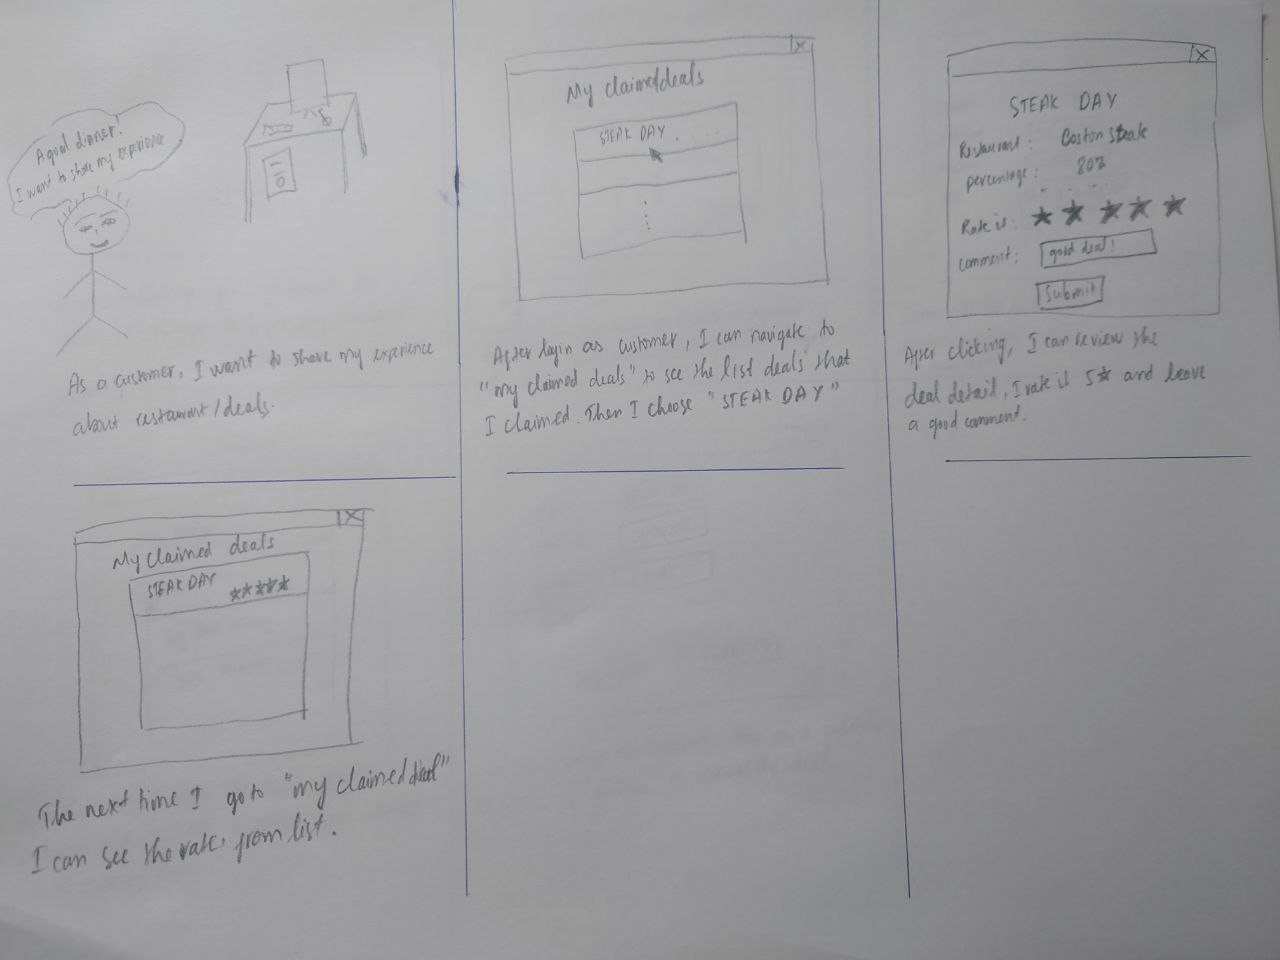 A good dinner!
I want to share my experience
As a customer, I want to share my experience
about restaurant/deals.
X
My claimed deals
STEAK DAY
After login as customer, I can navigate to
"my claimed deals" to see the list deals that
I claimed. Then I choose "STEAK DAY"
X
STEAK DAY
Restaurant: Boston Steak
percentage: 80%
Rate it:
comment: good deal!
Submit
After clicking, I can review the
deal detail, I rate it 5★ and leave
a good comment.
X
My claimed deals
STEAK DAY ★★★★★
The next time I go to "my claimed deal"
I can see the rate from list.